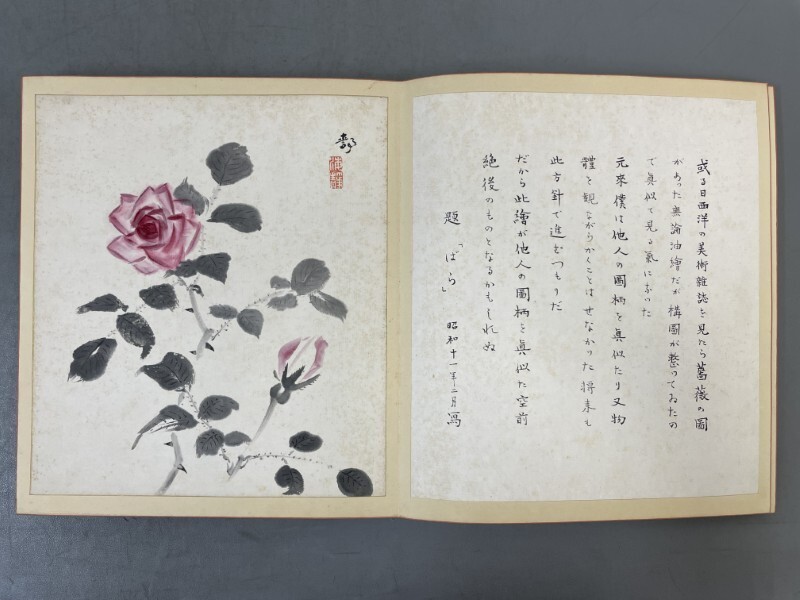 或る日西洋の美術雜誌を見たら薔薇の圖
があつた無論油繪だが構圖が整つてゐたの
で真似て見る氣になつた
元來僕は他人の圖柄を真似たり又物
體を観ながらかくことはせなかつた將来も
此方針で進むつもりだ
だから此繪が他人の圖柄を真似た空前
絶後のものとなるかもしれぬ
題「ばら」 昭和十一年二月寫